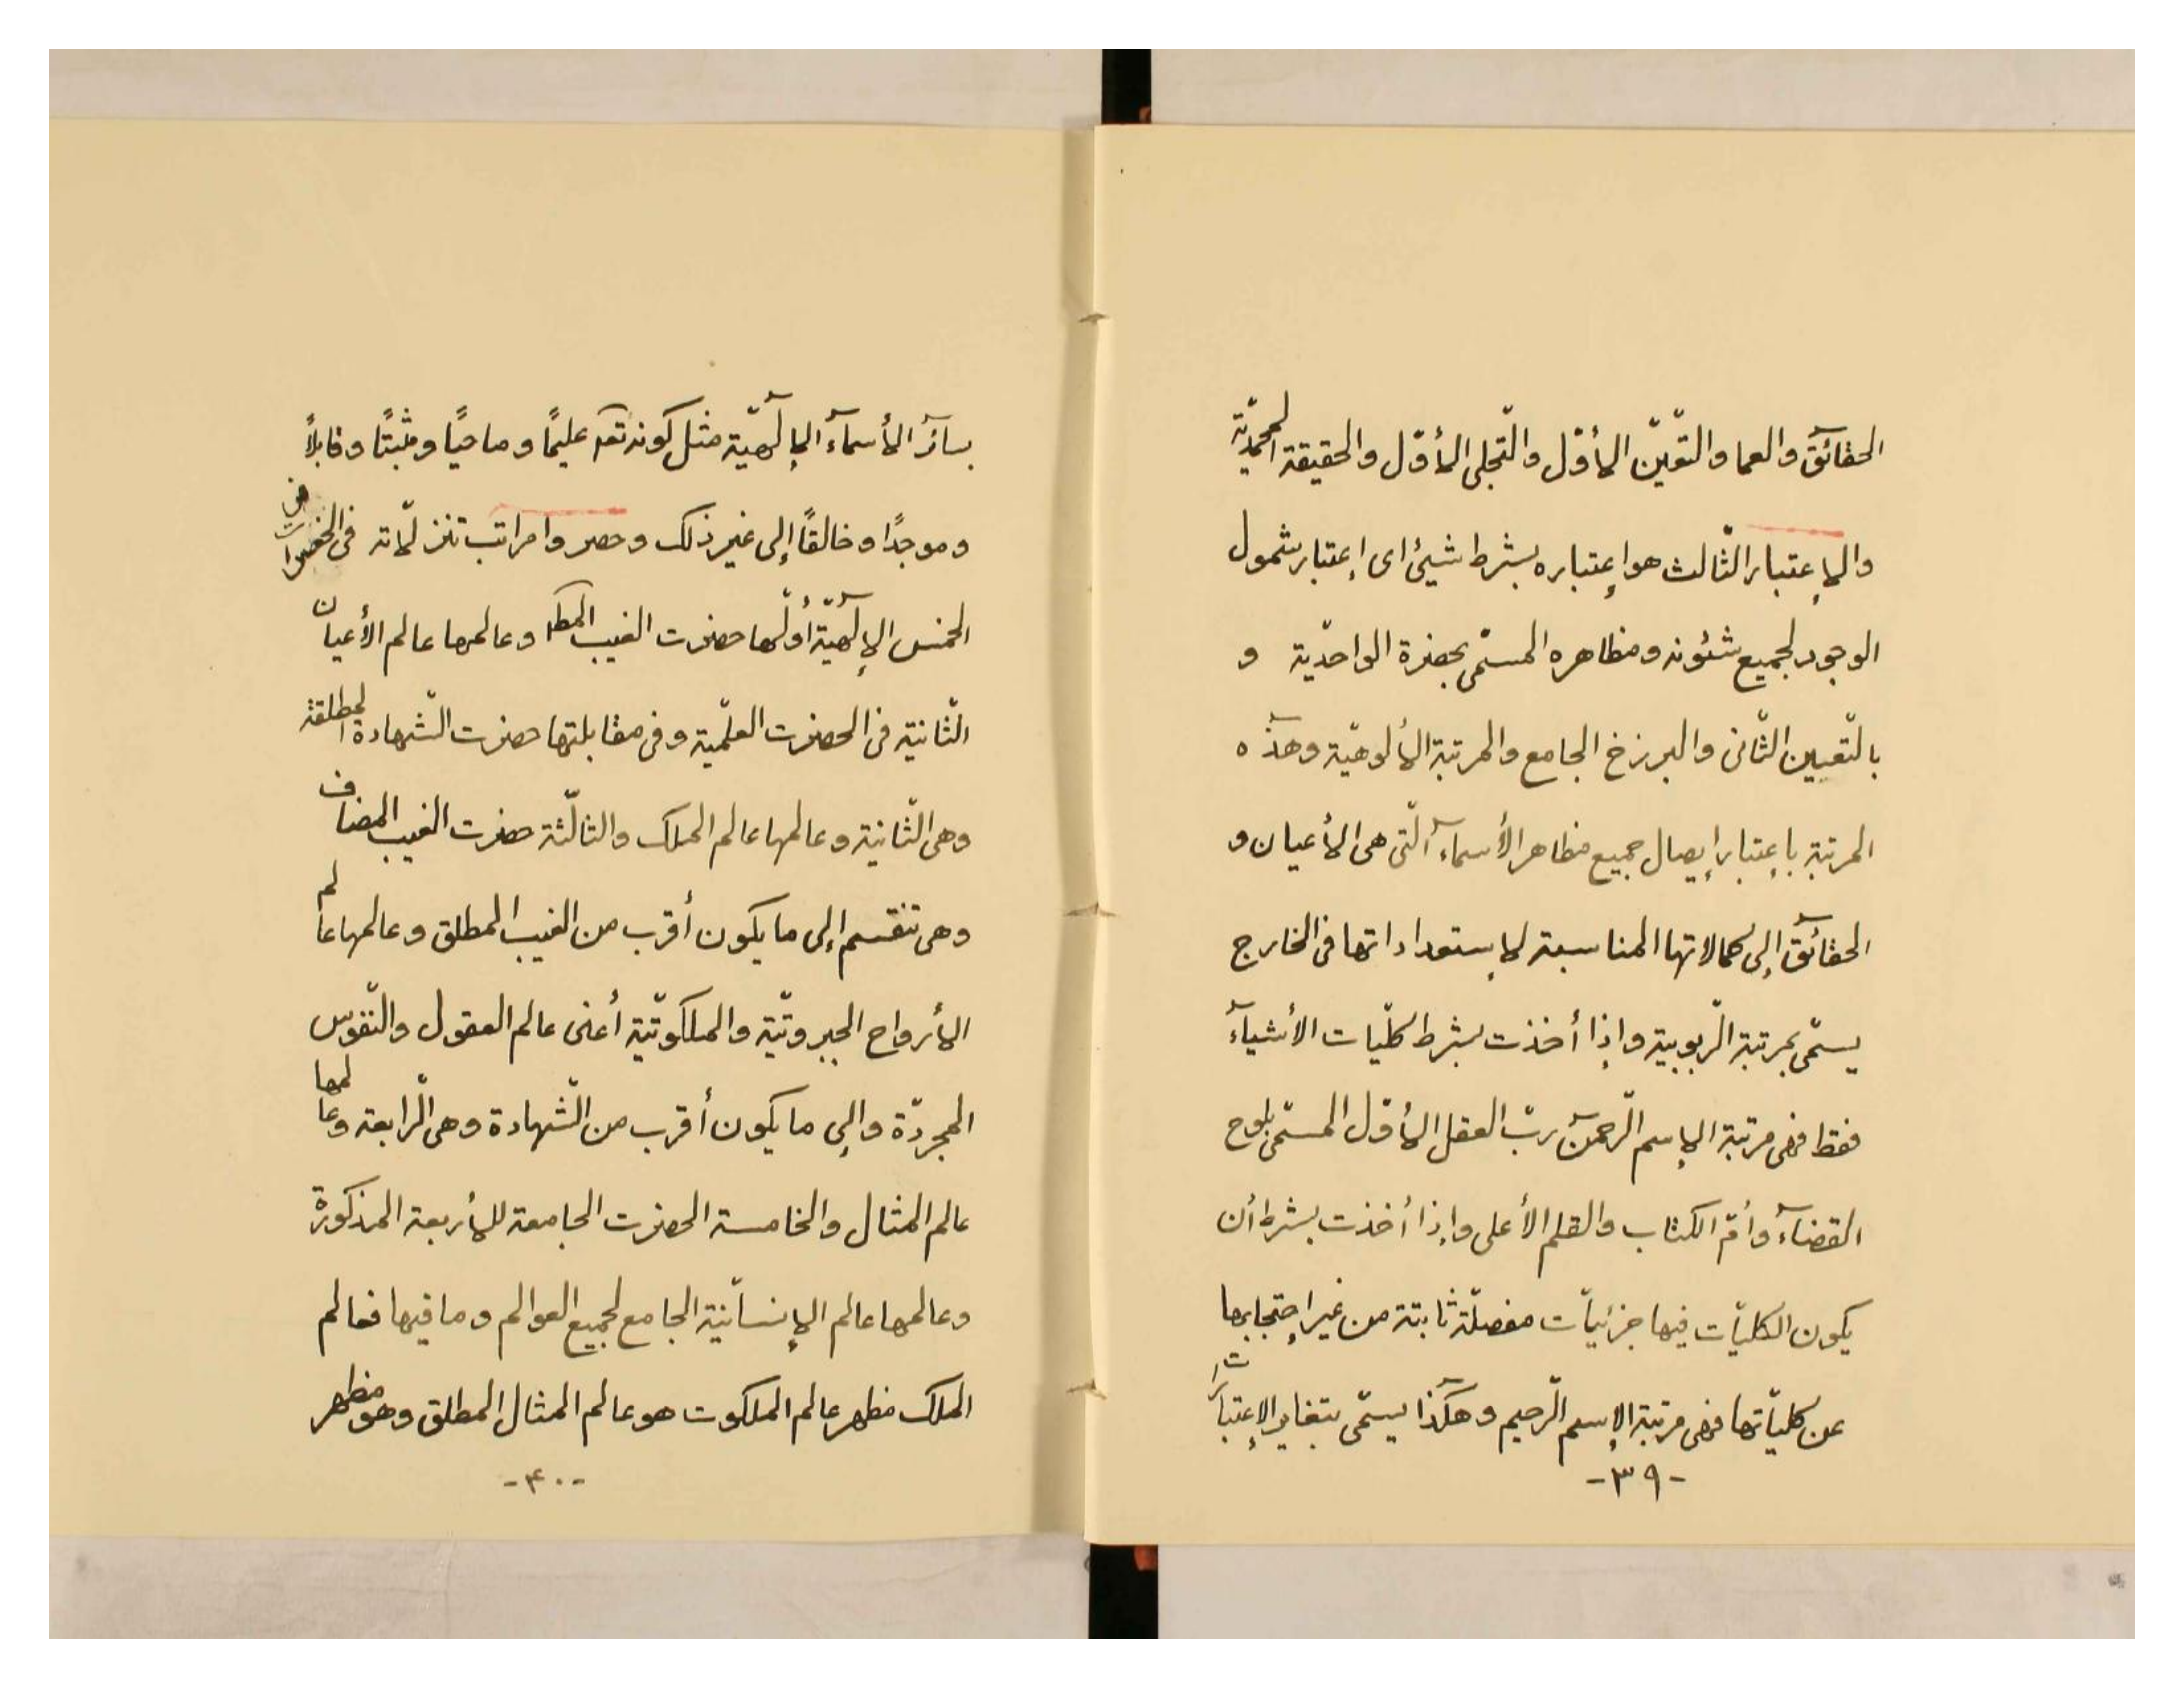 الحقآئق والعما والتّعيّن الأوّل والتّجلى الأوّل والحقيقة المحمّديّة
والإعتبار الثّالث هو إعتباره بشرط شيئ اى إعتبار شمول
الوجود لجميع شئونه ومظاهره المسمّى بحضرة الواحديّة و
بالتّعيين الثّانى والبرزخ الجامع والمرتبة الألوهيّة وهذه
المرتبة باعتبار إيصال جميع مظاهر الأسمآء الّتى هى الأعيان و
الحقآئق إلى كمالاتها المناسبة لإستعداداتها فى الخارج
يسمّى بمرتبة الرّبوبية وإذا أخذت بشرط كلّيات الأشيآء
فقط فهى مرتبة الإسم الرّحمن ربّ العقل الأوّل المسمّى بلوح
القضآء وأمّ الكتاب والقلم الأعلى وإذا أخذت بشرط أن
يكون الكليّات فيها جزئيّات مفصلّة ثابتة من غير إحتجابها
عن كليّاتها فهى مرتبة الإسم الرّحيم وهكذا يسمّى بتغاير الإعتبارات
-٣٩-
بسائر الأسمآء الإلٓهيّة مثل كونه تعه عليمًا وماحيًا ومثبتًا وقابلاً
وموجدًا وخالقًا إلى غير ذلك وحصروا مراتب تنزلّاته فى
الخمس الإلٓهيّة أوّلها حضرت الغيب المط وعالمها عالم الأعيان
الثّانية فى الحضرت العلّمية وفى مقابلتها حضرت الشّهادة المطلقة
وهى الثّانية وعالمها عالم الملك والثالّثة حضرت الغيب المضاف
وهى تنقسم إلى ما يكون أقرب من الغيب المطلق وعالمها عالم
الأرواح الجبروتيّة والملكوتيّة أعنى عالم العقول والنّفوس
المجردّة وإلى ما يكون أقرب من الشّهادة وهى الرّابعة وعالمها
عالم المثال والخامسة الحضرت الجامعة للأربعة المذكورة
وعالمها عالم الإنسانيّة الجامع لجميع العوالم وما فيها فعالم
الملك مظهر عالم الملكوت هو عالم المثال المطلق وهو مظهر
-۴۰-